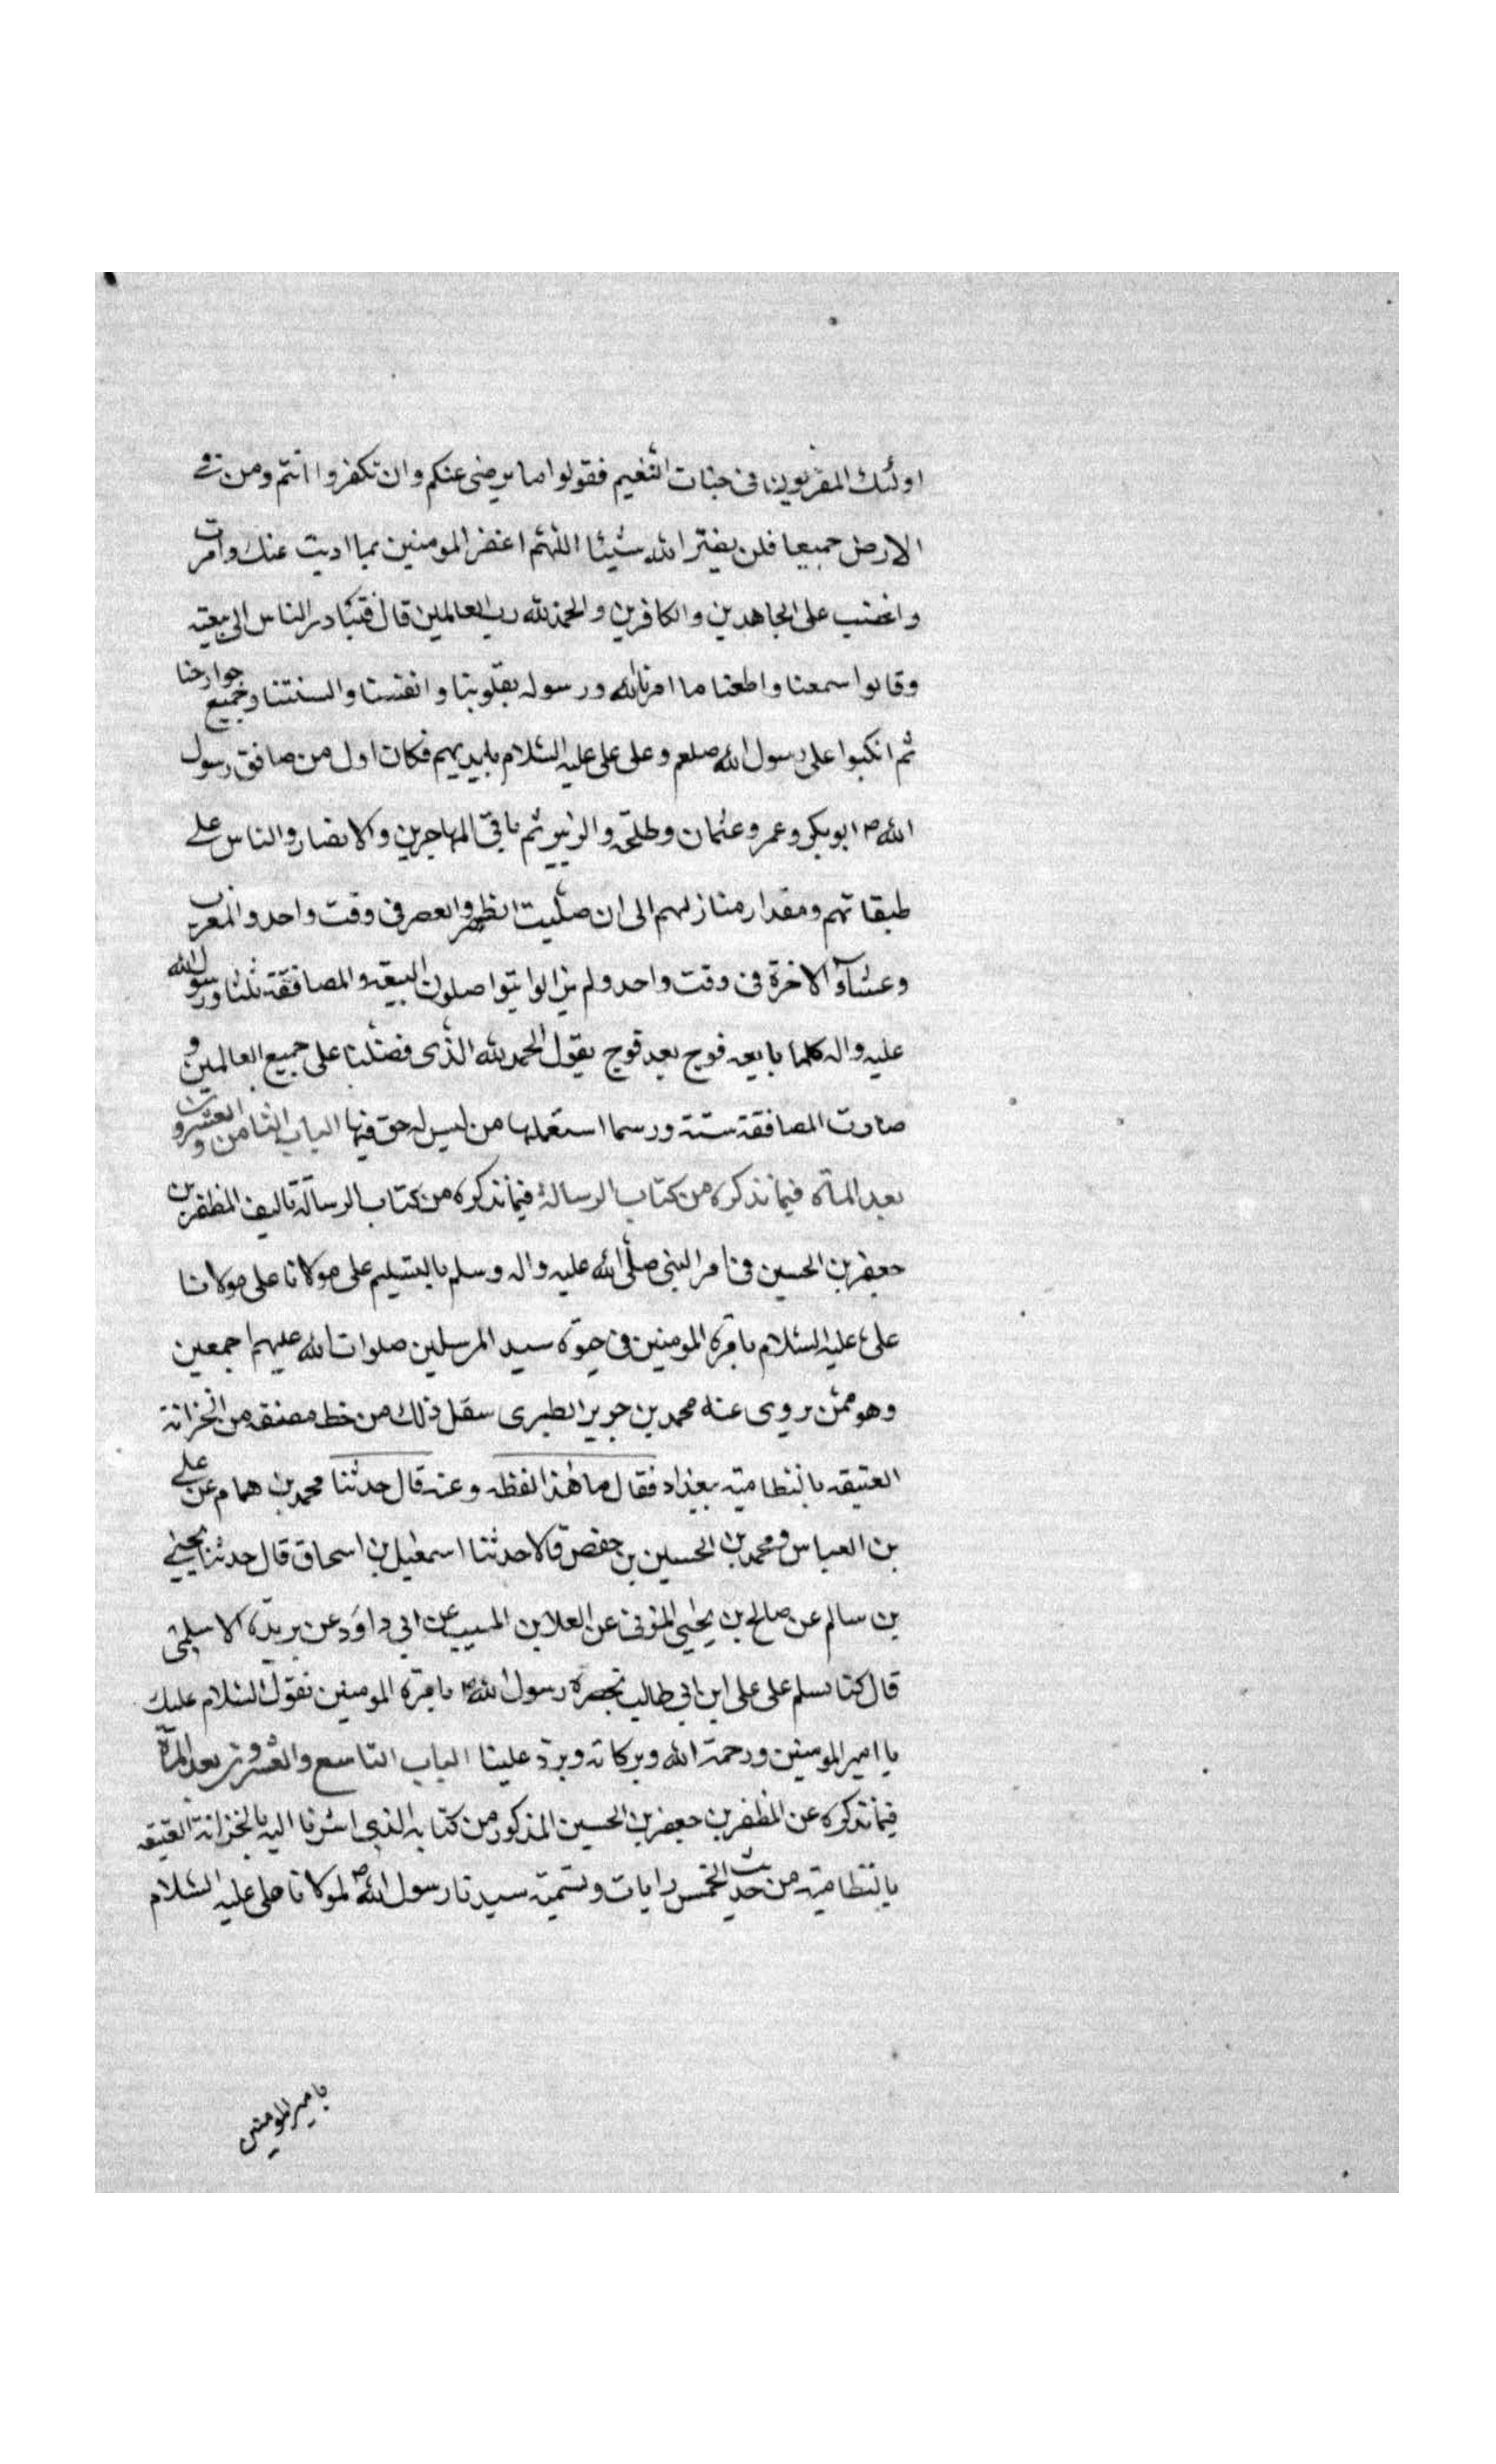 اولئك المقربون في جنات النعيم فقولوا ما يرضى عنكم وان تكفروا انتم ومن في
الارض جميعا فلن يضر الله شيئا اللهم اغفر المومنين بما اديت عنك وامرت
واغضب على الجاهدين والكافرين والحمد لله رب العالمين قال فتبادر الناس الى بيعته
وقالوا سمعنا واطعنا ما امرنا الله ورسوله بقلوبنا وانفسنا والسنتنا وجميع جوارحنا
ثم انكبوا على رسول الله صلعم وعلى على عليه السلام بايديهم فكان اول من صافق رسول
الله ص ابوبكر وعمر وعثمان وطلحة والزبير ثم باقي المهاجرين والانصار والناس على
طبقاتهم ومقدار منازلهم الى ان صليت الظهر والعصر في وقت واحد والمغرب
وعشآء الاخرة في وقت واحد ولم يزالوا يتواصلون البيعة والمصافقة ثلثا ورسول الله
عليه واله كلما بايعه فوج بعد فوج يقول الحمد لله الذى فضلنا على جميع العالمين و
صارت المصافقة سنة ورسما استعملها من ليس له حق فيها الباب الثامن والعشرون
بعد المائة فيما نذكره من كتاب الرسالة فيما نذكره من كتاب الرسالة تاليف المظفر بن
جعفر بن الحسين في امر النبي صلى الله عليه واله وسلم بالتسليم على مولانا على مولانا
على عليه السلام بامرة المومنين في حيوة سيد المرسلين صلوات الله عليهم اجمعين
وهو ممن يروى عنه محمد بن جرير الطبرى سقل ذلك من خط مصنفه من الخزانة
العتيقه بالنظامية ببغداد فقال ما هذا لفظه وعنه قال حدثنا محمد بن همام عن على
بن العباس ومحمد بن الحسين بن حفص قالا حدثنا اسمعيل بن اسحاق قال حدثنا يحيى
بن سالم عن صالح بن يحيى المزنى عن العلا بن المسيب عن ابي داود عن بريدة الاسلمي
قال كنا نسلم على على ابن ابي طالب بحضرة رسول الله ص بامرة المومنين نقول السلام عليك
يا امير المومنين ورحمة الله وبركاته ويرد علينا الباب التاسع والعشرون بعد المائة
فيما نذكره عن المظفر بن جعفر بن الحسين المذكور من كتابه الذى اشرنا اليه بالخزانة العتيقه
بالنظامية من حديث الخمس رايات وتسمية سيدنا رسول الله ص لمولانا على عليه السلام
بامير المومنين